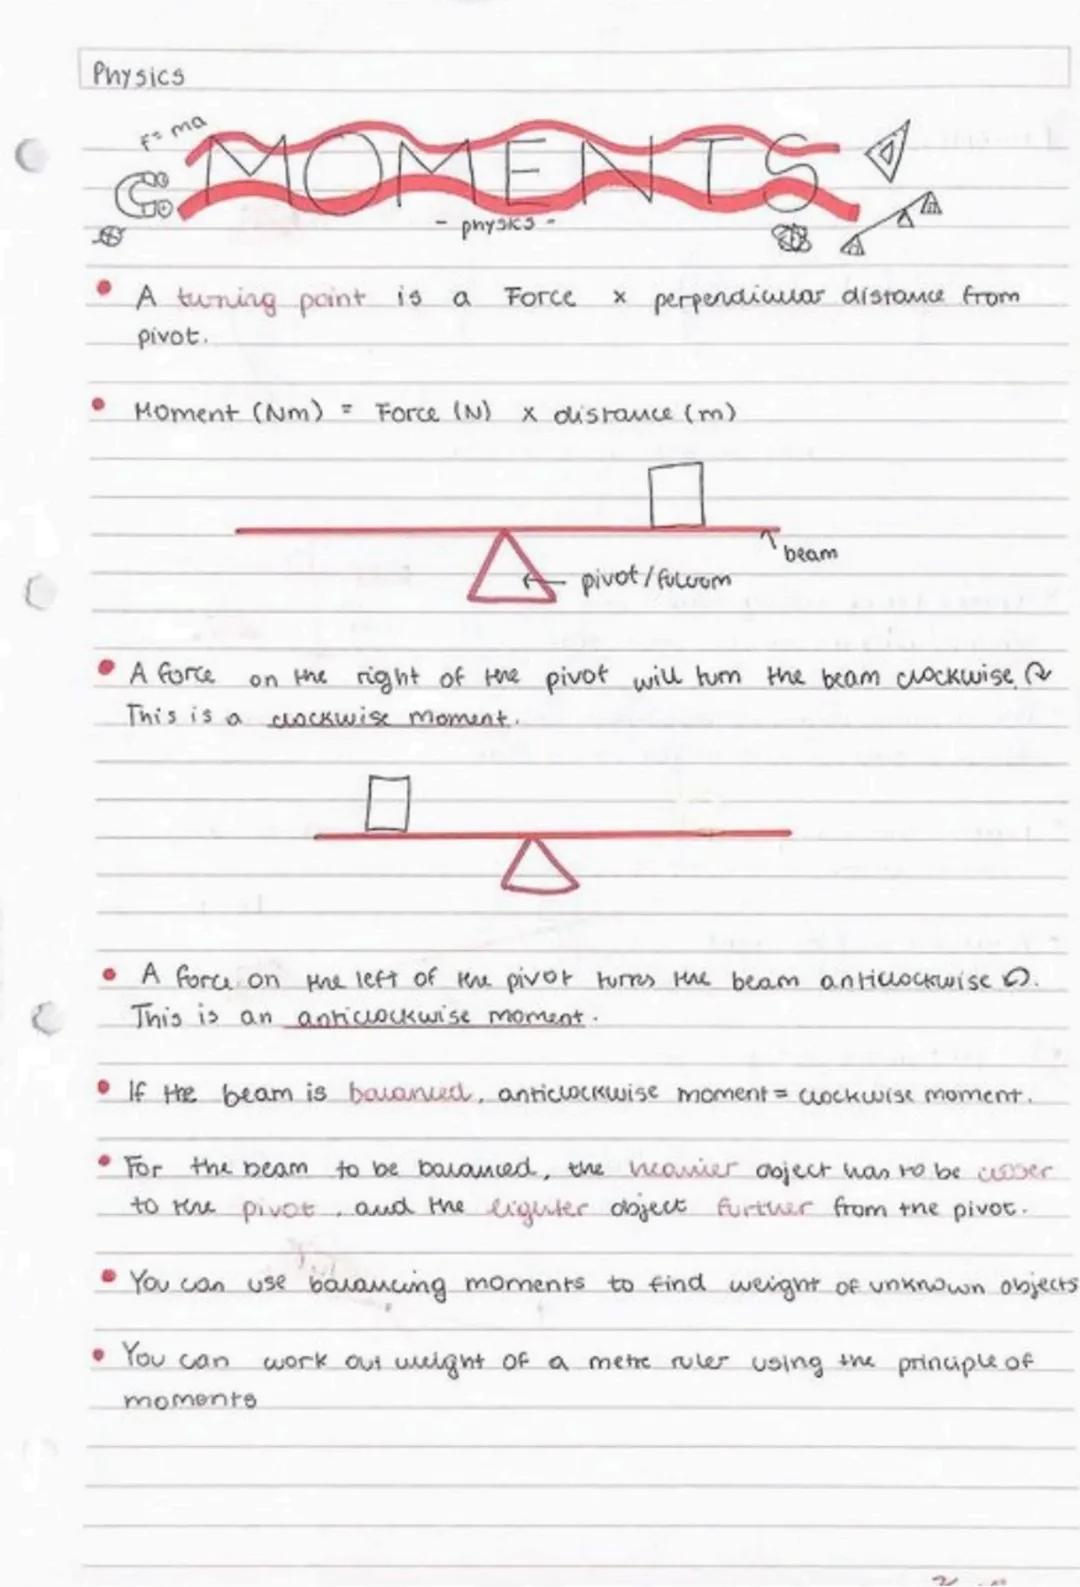 Physics
F= ma
MOMENTS
- physics -
• A turning point is a Force x perpendicular distance from
pivot.
• Moment (Nm) = Force (N) x distance (m)
beam
pivot/fulcrum
• A force on the right of the pivot will turn the beam clockwise
This is a clockwise moment.
• A force on the left of the pivot turns the beam anticlockwise
This is an anticlockwise moment.
• If the beam is balanced, anticlockwise moment = clockwise moment.
• For the beam to be balanced, the heavier object has to be closer
to the pivot, and the lighter object further from the pivot.
• You can use balancing moments to find weight of unknown objects
• You can work out weight of a metre ruler using the principle of
moments